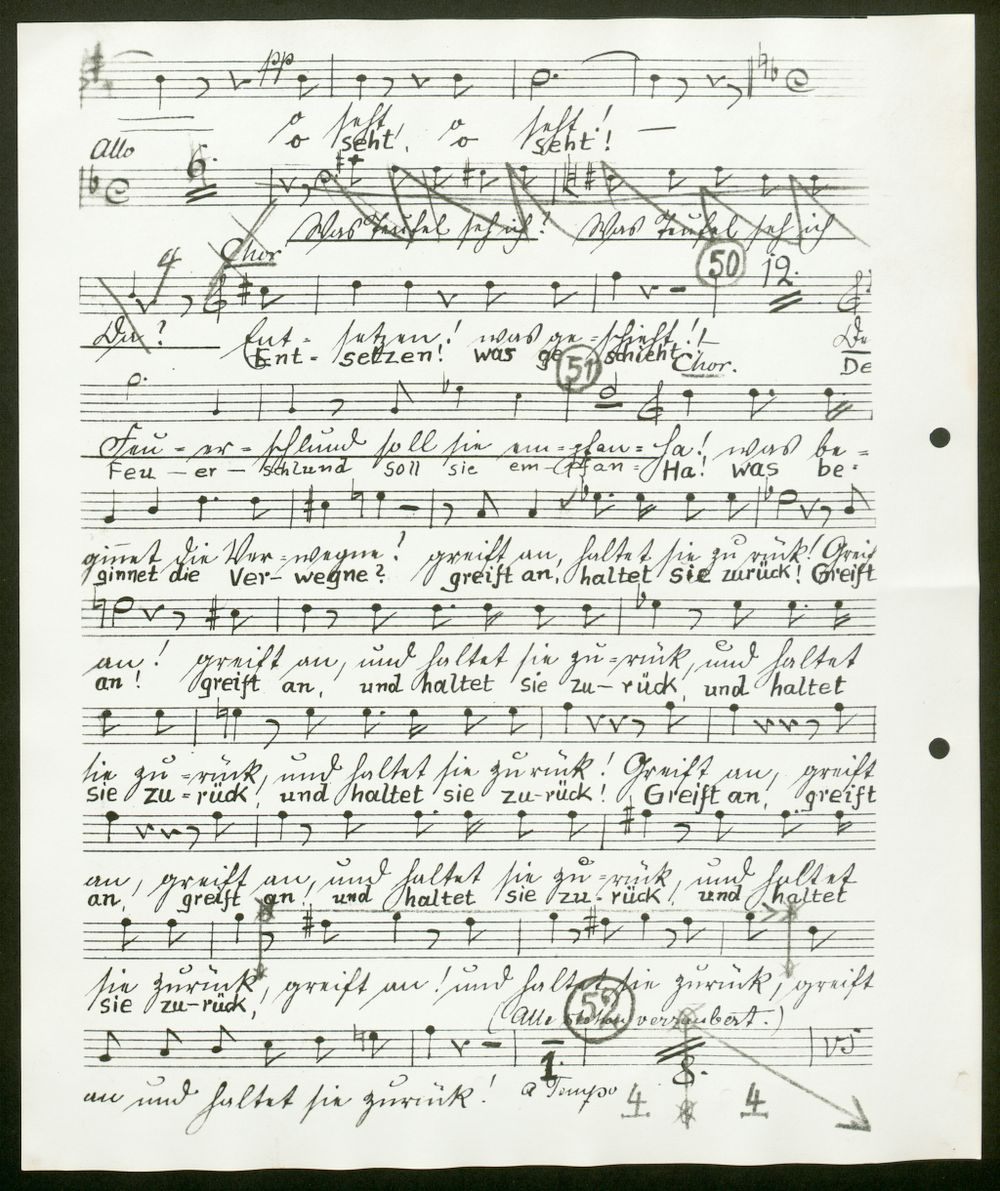 pp
o seht, o seht! —
o seht, o seht!
Allo
6.
Was Teufel seh ich? Was Teufel seh ich
Chor
4
50
12.
Da? Ent- setzen! was ge-schieht! De
Ent- setzen! was ge schieht De
51
Chor.
Feu-er-schlund soll sie em-pfan- Ha! was be-
Feu-er-schlund soll sie em-pfan- Ha! was be-
ginnet die Ver-wegne? greift an, haltet sie zu rück! Greif
ginnet die Ver-wegne? greift an, haltet sie zurück! Greift
an! greift an, und haltet sie zu-rück, und haltet
an! greift an, und haltet sie zu-rück, und haltet
sie zu-rück, und haltet sie zurück! Greift an, greift
sie zu-rück, und haltet sie zu-rück! Greift an, greift
an, greift an, und haltet sie zu-rück, und haltet
an, greift an, und haltet sie zu-rück, und haltet
sie zurück, greift an! und haltet sie zurück, greift
sie zu-rück,!
52
(Alle stehen verzaubert.)
VS
1.
8.
an und haltet sie zurück! a Tempo 4 4